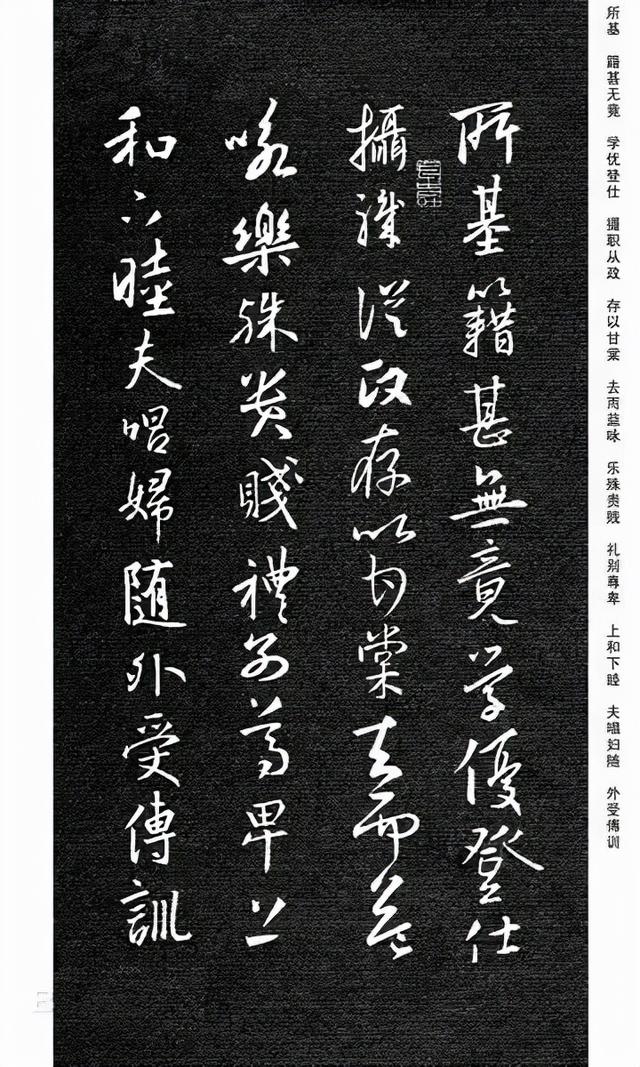 所基 籍甚无竟 学优登仕 摄职从政 存以甘棠 去而益咏 乐殊贵贱 礼别尊卑 上和下睦 夫唱妇随 外受傅训
所基籍甚無竟学優登仕
攝職從政存以甘棠去而益
咏樂殊貴賤禮別尊卑上
和下睦夫唱婦随外受傅訓